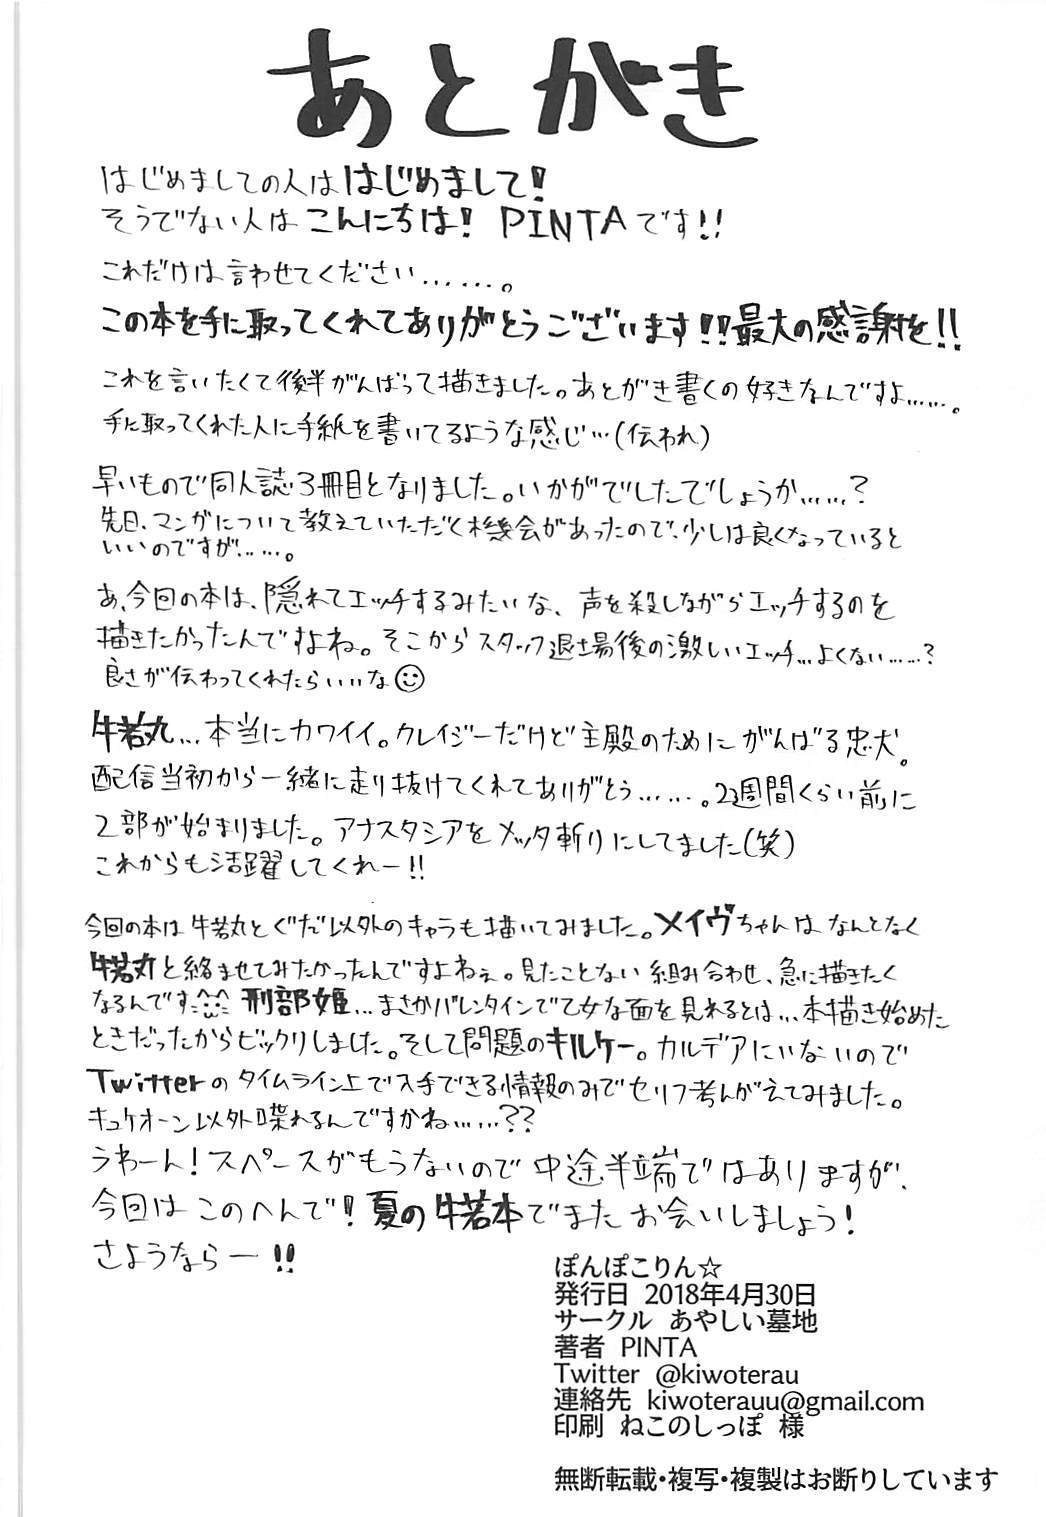 あとがき
はじめましての人ははじめまして!
そうでない人は こんにちは! PINTAです!!
これだけは言わせてください.......。
この本を手に取ってくれてありがとうございます!!最大の感謝を!!
これを言いたくて後半がんばって描きました。あとがき書くの好きなんですよ......。
手に取ってくれた人に手紙を書いてるような感じ...(伝われ)
早いもので同人誌3冊目となりました。いかがでしたでしょうか......?
先日、マンガについて教えていただく機会があったので、少しは良くなっていると
いいのですが......。
あ、今回の本は、隠れてエッチするみたいな、声を殺しながらエッチするのを
描きたかったんですよね。そこからスタッフ退場後の激しいエッチ...よくない......?
良さが伝わってくれたらいいな☺
牛若丸...本当にカワイイ。クレイジーだけど主殿のためにがんばる忠犬。
配信当初から一緒に走り抜けてくれてありがとう......。2週間くらい前に
2部が始まりました。アナスタシアをメッタ斬りにしてました(笑)
これからも活躍してくれー!!
今回の本は牛若丸とぐだ以外のキャラも描いてみました。メイヴちゃんはなんとなく
牛若丸と絡ませてみたかったんですよねぇ。見たことない組み合わせ、急に描きたく
なるんです^^ 刑部姫...まさかバレンタインで乙女な面を見れるとは...本描き始めた
ときだったからビックリしました。そして問題のキルケー。カルデアにいないので
Twitterのタイムライン上で入手できる情報のみでセリフ考えてみました。
キュケオーン以外喋れるんですかね......??
うわーん!スペースがもうないので中途半端ではありますが、
今回はこのへんで!夏の牛若本でまたお会いしましょう!
さようならー!!
ぽんぽこりん☆
発行日 2018年4月30日
サークル あやしい墓地
著者 PINTA
Twitter @kiwoterau
連絡先 kiwoterauu@gmail.com
印刷 ねこのしっぽ 様
無断転載・複写・複製はお断りしています